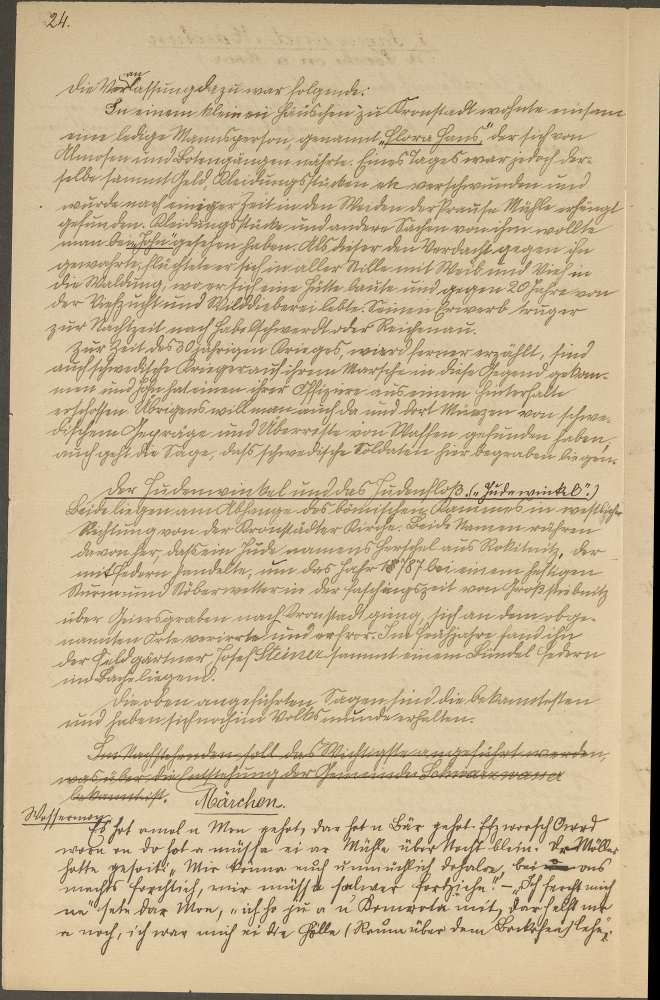 24.
Die Veranlassung dazu war folgende:
In einem kleinen Häuschen zu Kronstadt wohnte einsam
eine ledige Mannsperson, genannt „Flora Hans", der sich von
Almosen und Botengängen nährte. Eines Tages war jedoch der-
selbe sammt Geld, Kleidungsstücken etc verschwunden und
wurde nach einiger Zeit in den Weiden der Prause Mühle erhängt
gefunden. Kleidungsstücke und andere Sachen von ihm wollte
man bei gesehen haben. Als dieser den Verdacht gegen ihn
gewahrte, flüchtete er sich in aller Stille mit Weib und Vieh in
die Waldung, wo er sich eine Hütte baute und gegen 20 Jahre von
der Viehzucht und Wilddieberei lebte. Seinen Erwerb trug er
zur Nachtzeit nach Habelschwerdt oder Reichenau.
Zur Zeit des 30 jährigen Krieges, wird ferner erzählt, sind
auch schwedische Krieger auf ihrem Marsche in diese Gegend gekom-
men und hat einen ihrer Offiziere aus einem Hinterhalte
erschossen. Übrigens will man auch da und dort Münzen von schwe-
dischem Gepräge und Überreste von Waffen gefunden haben,
auch geht die Sage, dass schwedische Soldaten hier begraben liegen.
Der Judenwinkel und das Judenfloß. („Judewinkel".)
Beide liegen am Abhange des böhmischen Kammes in westlicher
Richtung von der Kronstädter Kirche. Beide Namen rühren
davon her, dass ein Jude namens Herschel aus Rokitnitz, der
mit Federn handelte, um das Jahr 1787 bei einem heftigen
Sturm und Stöberwetter in der Faschingszeit von Großstiebnitz
über Geiersgraben nach Kronstadt ging, sich an dem obge-
nannten Orte verirrte und erfror. Im Frühjahre fand ihn
der Feldgärtner Josef Steiner sammt einem Bündel Federn
im Bache liegend.
Die oben angeführten Sagen sind die bekanntesten
und haben sich noch im Volksmunde erhalten.
Im Nachstehenden soll das Wichtigste angeführt werden,
was über die Entstehung der Gemeinde Schwarzwasser
bekannt ist.
Märchen.
Wassermon
Es hot amol a Mon gehot, dar hot n Bär gehot.
worn on do hot a müssa ei ar Mühle über Nocht blein. Dr Müller
hotte gesoit: „Mir könna euch dohaln, bei ons
machts forchtlich, mir müssa salwer fortziehn." – „Ich fercht mich
ne" sete dar Mon, „ich ho ju a n Komrota mit, dar helft mr
a noch, ich war mich ei die Hölle (Raum über dem Backofen) lehn;